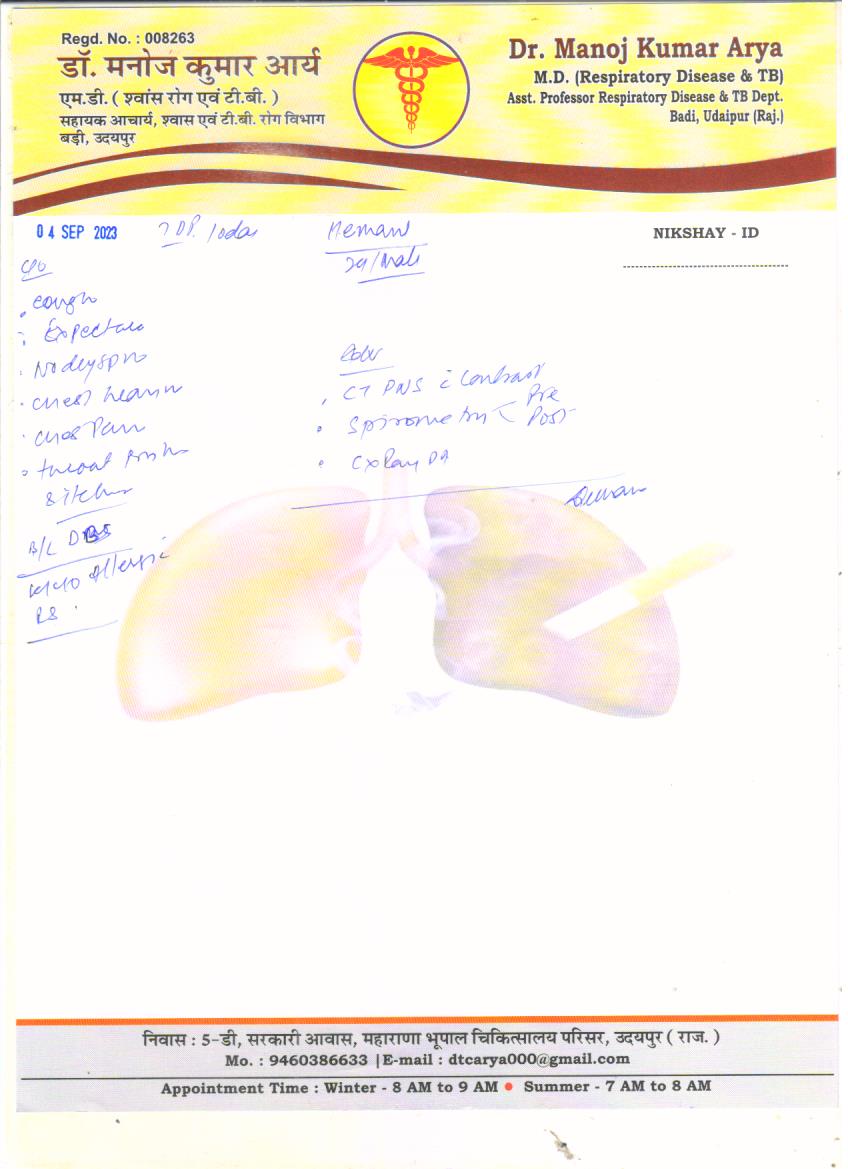 Regd. No. : 008263
डॉ. मनोज कुमार आर्य
एम.डी. ( श्वांस रोग एवं टी.बी. )
सहायक आचार्य, श्वास एवं टी.बी. रोग विभाग
बड़ी, उदयपुर
Dr. Manoj Kumar Arya
M.D. (Respiratory Disease & TB)
Asst. Professor Respiratory Disease & TB Dept.
Badi, Udaipur (Raj.)
04 SEP 2023
NIKSHAY - ID
29/Male
C/o
Cough
Chest Pain
throat
B/L
Allergic
Adv
CT PNS c Contrast
Spirometry Pre
Post
CxRay PA
निवास : 5-डी, सरकारी आवास, महाराणा भूपाल चिकित्सालय परिसर, उदयपुर ( राज. )
Mo. : 9460386633 | E-mail : dtcarya000@gmail.com
Appointment Time : Winter - 8 AM to 9 AM • Summer - 7 AM to 8 AM